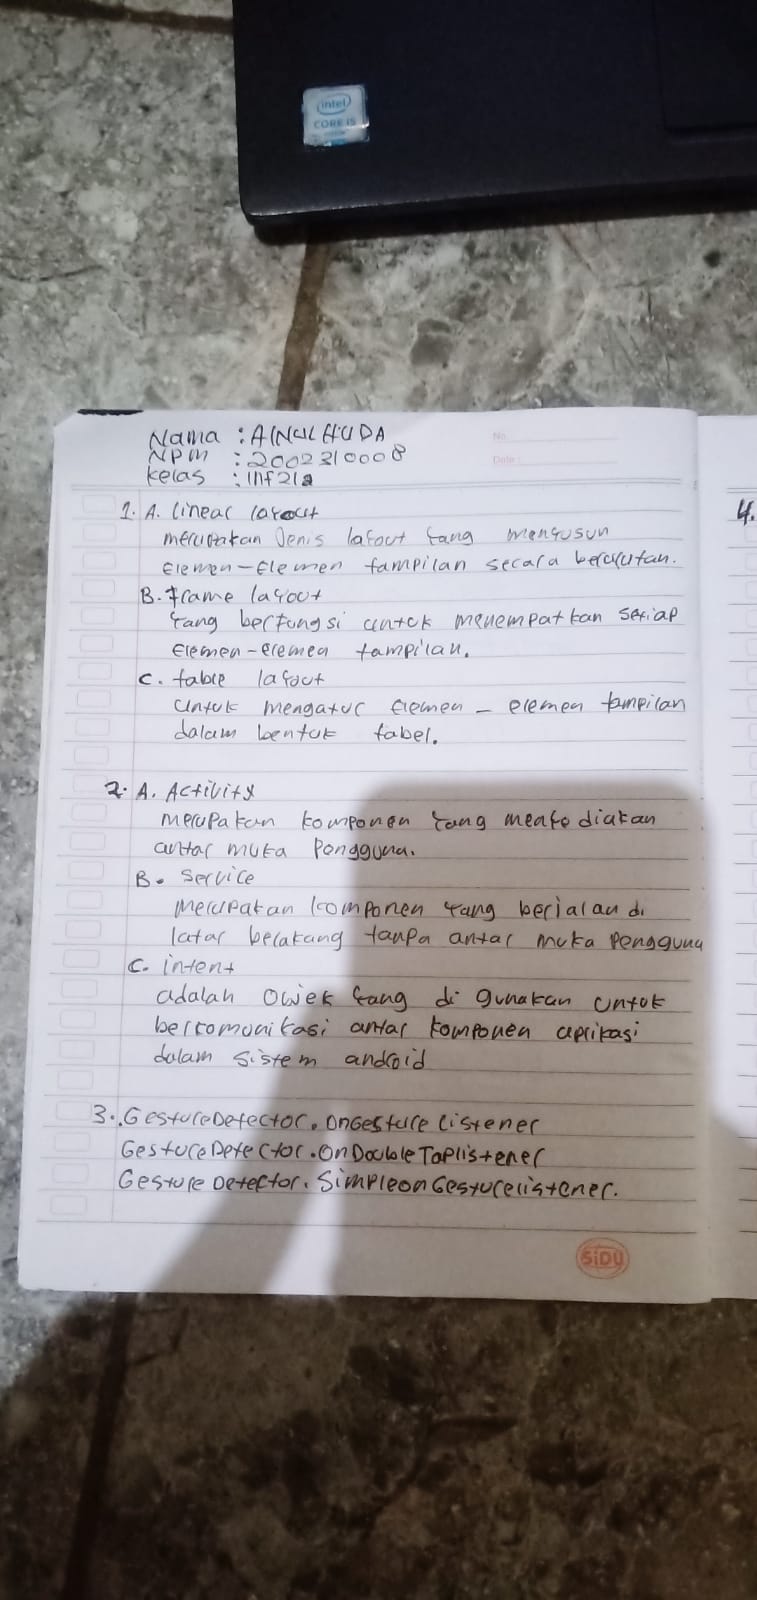 intel
CORE i5
Nama : AINUL HUDA
NPM : 2002310008
Kelas : Inf21a
No.
Date :
1. A. Linear layout
merupakan Jenis layout yang menyusun
Elemen-Elemen tampilan secara berurutan.
B. Frame layout
yang berfungsi untuk menempatkan setiap
Elemen-elemen tampilan.
C. table layout
untuk mengatur elemen - elemen tampilan
dalam bentuk tabel.
2. A. Activity
merupakan komponen yang menyediakan
antar muka Pengguna.
B. Service
merupakan komponen yang berjalan di
latar belakang tanpa antar muka Pengguna
C. intent
adalah objek yang di gunakan untuk
berkomunikasi antar komponen aplikasi
dalam sistem android
3. GestureDetector.OnGesture Listener
GestureDetector.OnDoubleTaplistener
Gesture Detector.SimpleonGesturelistener.
SiDU
4.